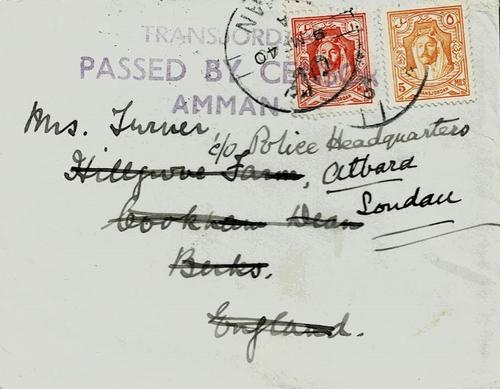 TRANSJORDAN
PASSED BY CENSOR
AMMAN
9 MY 40
5
Mrs. Turner
c/o Police Headquarters
Hillgrove Farm, Atbara
Cookham Dean Soudan
Berks.
England.